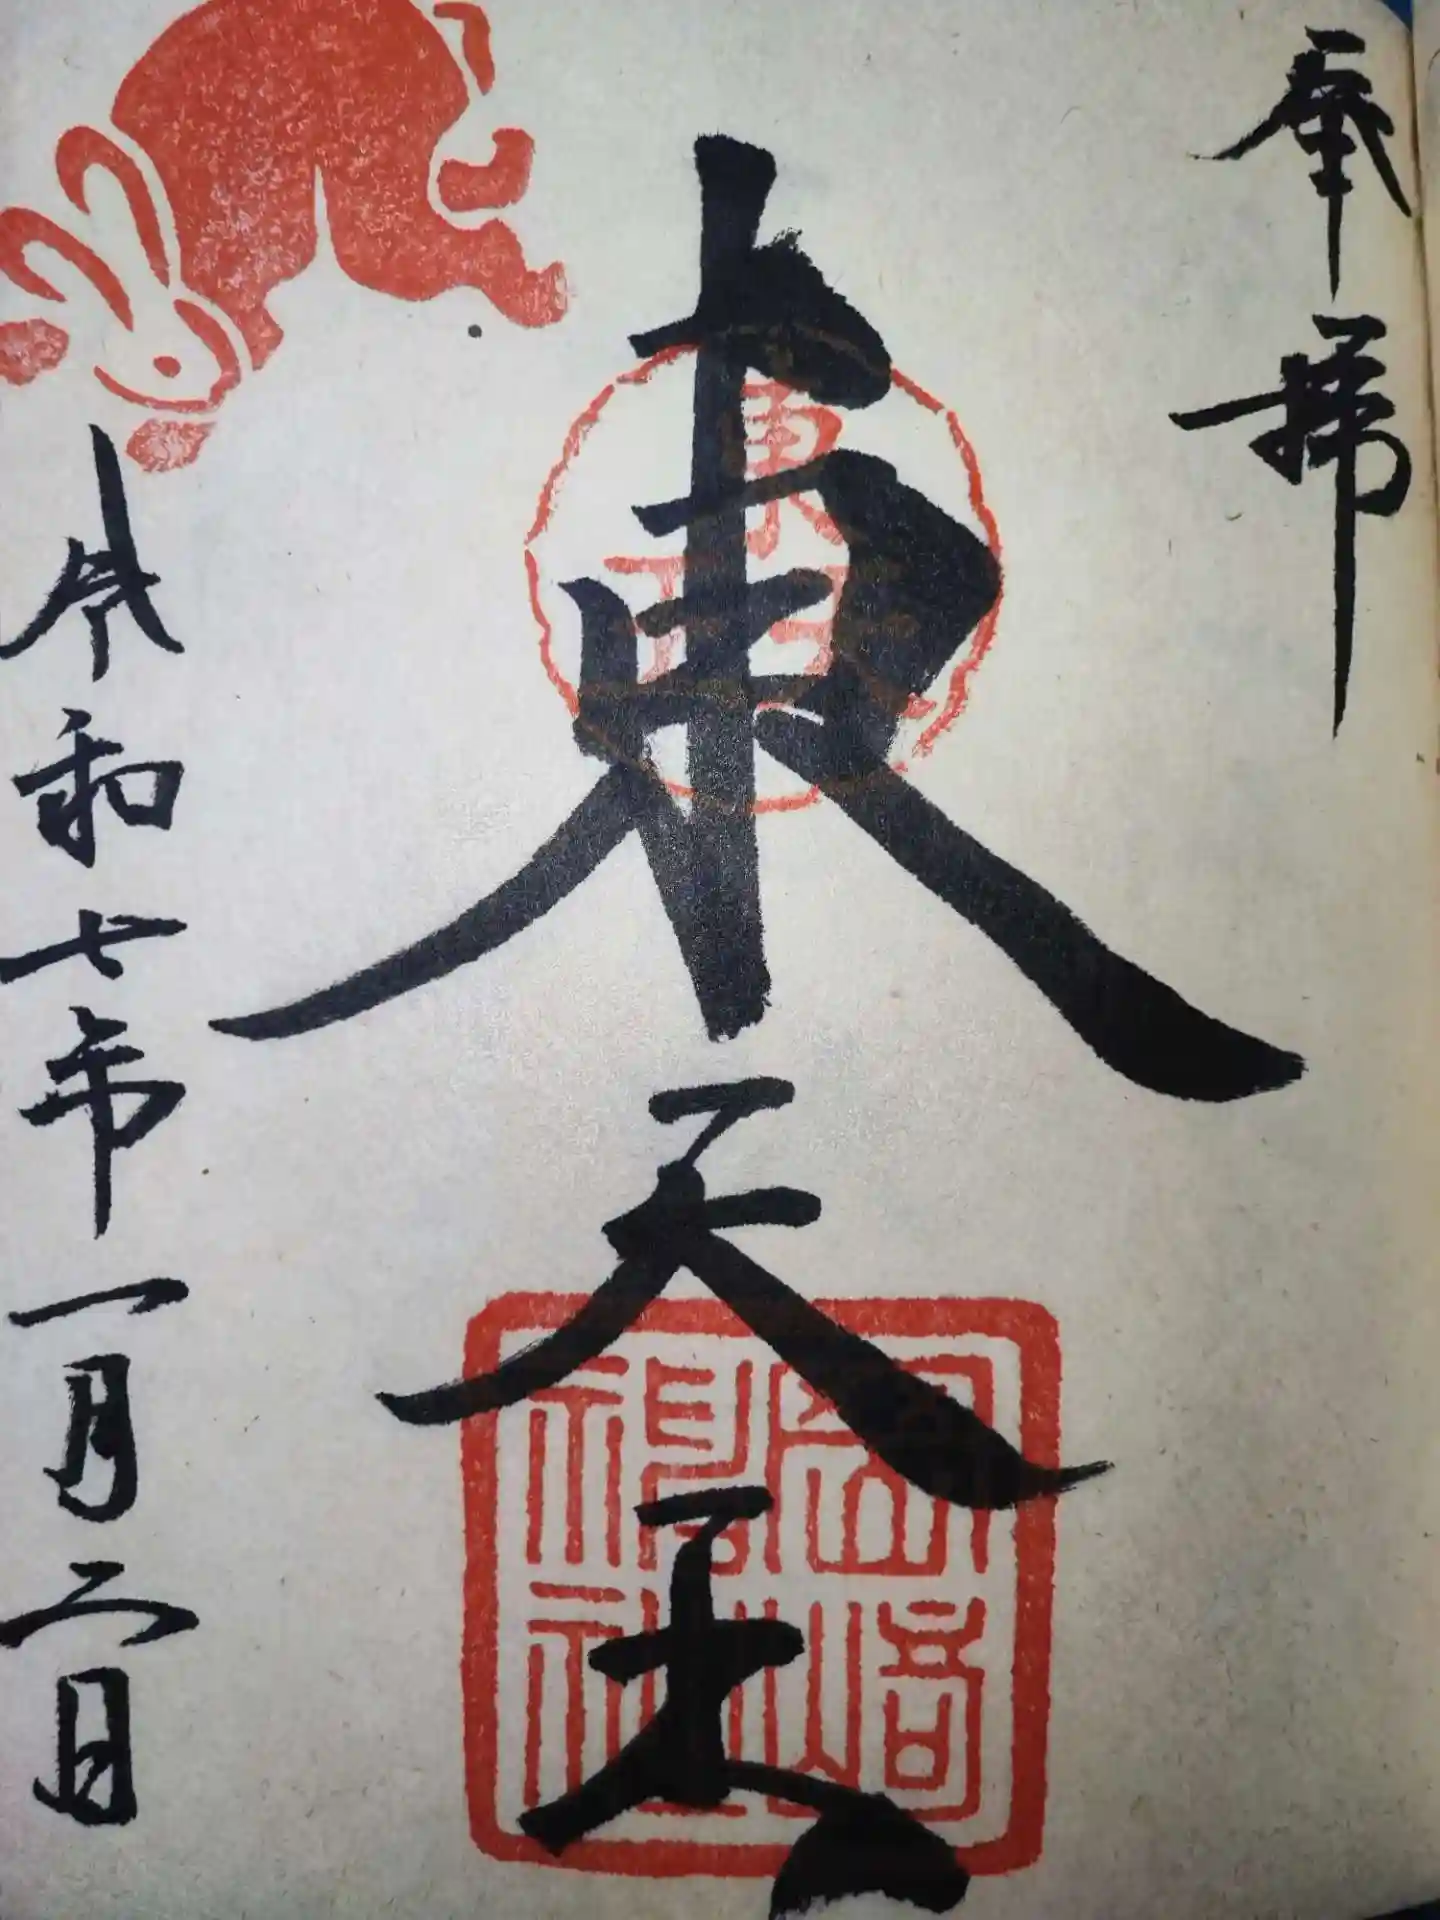 奉拝
東天王
岡崎
神社
令和七年一月二日